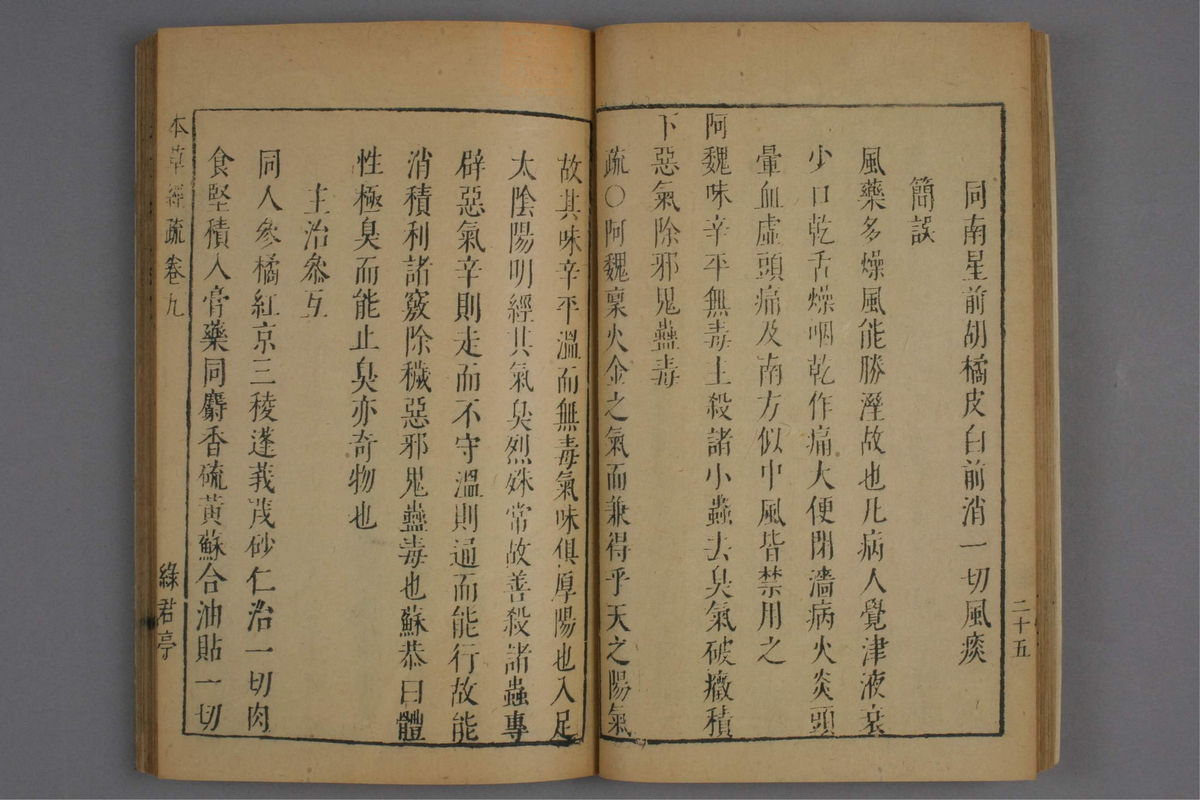 二十五
同南星前胡橘皮白前消一切風痰
簡誤
風藥多燥風能勝溼故也凡病人覺津液衰
少口乾舌燥咽乾作痛大便閉濇病火炎頭
暈血虛頭痛及南方似中風皆禁用之
阿魏味辛平無毒主殺諸小蟲去臭氣破癥積
下惡氣除邪鬼蠱毒
疏〇阿魏稟火金之氣而兼得乎天之陽氣
故其味辛平溫而無毒氣味俱厚陽也入足
太陰陽明經其氣臭烈殊常故善殺諸蟲專
辟惡氣辛則走而不守溫則通而能行故能
消積利諸竅除穢惡邪鬼蠱毒也蘇恭曰體
性極臭而能止臭亦奇物也
主治參互
同人參橘紅京三稜蓬莪茂砂仁治一切肉
食堅積入膏藥同麝香硫黃蘇合油貼一切
本草經疏卷九
綠君亭